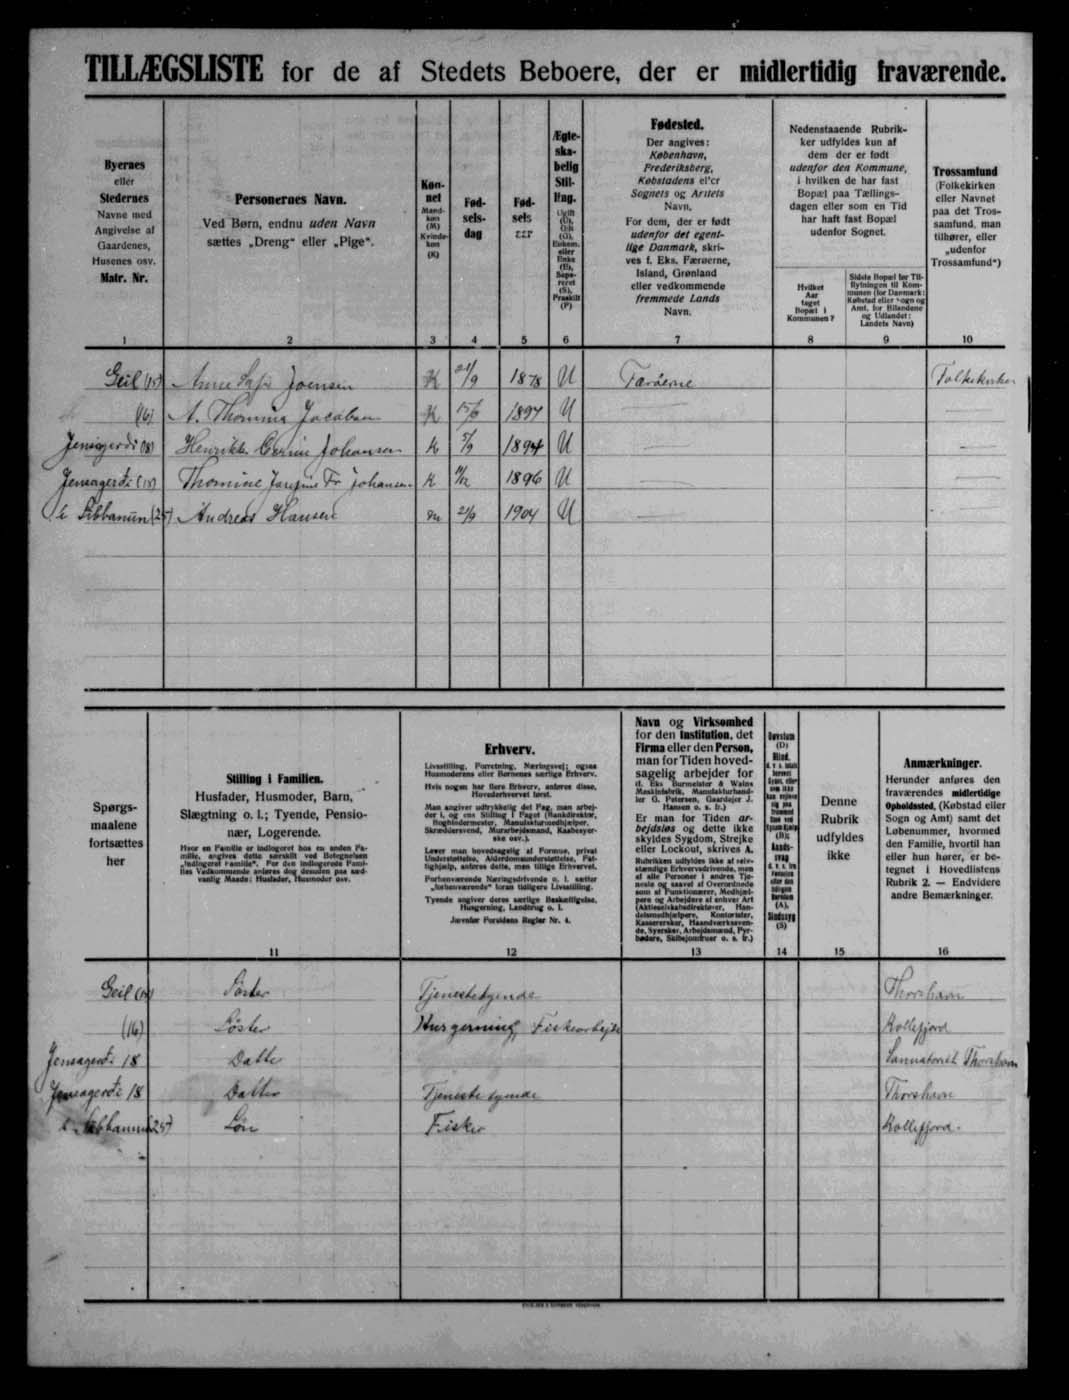 TILLÆGSLISTE for de af Stedets Beboere, der er midlertidig fraværende.
Byernes
eller
Stedernes
Navne med
Angivelse af
Gaardenes,
Husenes osv.
Matr. Nr.
1
Personernes Navn.
Ved Børn, endnu uden Navn
sættes „Dreng“ eller „Pige“.
2
Køn-
net
Mand-
køn
(M)
Kvinde-
køn
(K)
3
Fød-
sels-
dag
4
Fød-
sels
aar
5
Ægte-
ska-
belig
Stil-
ling.
Ugift
(U),
Gift
(G),
Enkem.
eller
Enke
(E),
Sepa-
reret
(S),
Fraskilt
(F)
6
Fødested.
Der angives:
København,
Frederiksberg,
Købstadens eller
Sognets og Amtets
Navn.
For dem, der er født
udenfor det egent-
lige Danmark, skri-
ves f. Eks. Færøerne,
Island, Grønland
eller vedkommende
fremmede Lands
Navn.
7
Nedenstaaende Rubrik-
ker udfyldes kun af
dem der er født
udenfor den Kommune,
i hvilken de har fast
Bopæl paa Tællings-
dagen eller som en Tid
har haft fast Bopæl
udenfor Sognet.
Hvilket
Aar
taget
Bopæl i
Kommunen?
8
Sidste Bopæl før Til-
flytningen til Kom-
munen (for Danmark:
Købstad eller Sogn og
Amt, for Bilandene
og Udlandet:
Landets Navn)
9
Trossamfund
(Folkekirken
eller Navnet
paa det Tros-
samfund, man
tilhører, eller
„udenfor
Trossamfund“)
10
Geil (15) Anne Joensen K 21/9 1878 U Færøerne Folkekirken
(16) A. Thomina Jacobsen K 1897 U
Jensagerdi (18) Henrikke Johansen K 5/9 1894 U
Jensagerdi (18) Thomine Josefine Fr. Johansen K 11/12 1896 U
(25) Andreas Hansen M 21/9 1904 U
Spørgs-
maalene
fortsættes
her
Stilling i Familien.
Husfader, Husmoder, Barn,
Slægtning o. l.; Tyende, Pensio-
nær, Logerende.
Hvor en Familie er indlogeret hos en anden Fa-
milie, angives dette særskilt ved Betegnelsen
„indlogeret Familie“. For den indlogerede Fami-
lies Vedkommende anføres dog desuden paa sæd-
vanlig Maade: Husfader, Husmoder osv.
11
Erhverv.
Livsstilling, Forretning, Næringsvej; ogsaa
Husmoderens eller Børnenes særlige Erhverv.
Hvis nogen har flere Erhverv, anføres disse,
Hovederhvervet først.
Man angiver udtrykkelig det Fag, man arbej-
der i, og ens Stilling i Faget (Bankdirektør,
Boghindermester, Manufakturmedhjælper,
Skræddersvend, Murarbejdsmand, Kaabesyer-
ske osv.).
Lever man hovedsagelig af Formue, privat
Understøttelse, Alderdomsunderstøttelse, Fat-
tighjælp, anføres dette, men tillige Erhvervet.
Forhenværende Næringsdrivende o. l. sætter
„forhenværende“ foran tidligere Livsstilling.
Tyende angiver deres særlige Beskæftigelse,
Husgerning, Landbrug o. l.
Jævnfør Forsidens Regler Nr. 4.
12
Navn og Virksomhed
for den Institution, det
Firma eller den Person,
man for Tiden hoved-
sagelig arbejder for
(f. Eks Burmeister & Wains
Maskinfabrik, Manufakturhand-
ler G. Petersen, Gaardejer J.
Hansen o. s. fr.)
Er man for Tiden ar-
bejdsløs og dette ikke
skyldes Sygdom, Strejke
eller Lockout, skrives A.
Rubrikken udfyldes ikke af selv-
stændige Erhvervsdrivende, men
af alle Personer i andres Tje-
neste og saavel af Overordnede
som af Funktionærer, Medhjæl-
pere og Arbejdere af enhver Art
(Aktieselskabsdirektører, Han-
delsmedhjælpere, Kontorister,
Kassererskér, Haandværkssven-
de, Syersker, Arbejdsmænd, Fyr-
bødere, Skibsjomfruer o. s. fr.)
13
Døvstum
(D)
Blind,
(B);
Aands-
svag
(A),
Sindssyg
(S)
14
Denne
Rubrik
udfyldes
ikke
15
Anmærkninger.
Herunder anføres den
fraværendes midlertidige
Opholdssted, (Købstad eller
Sogn og Amt) samt det
Løbenummer, hvormed
den Familie, hvortil han
eller hun hører, er be-
tegnet i Hovedlistens
Rubrik 2. — Endvidere
andre Bemærkninger.
16
Geil (15) Søster Tjenestetyende Thorshavn
(16) Søster Husgerning, Fiskearbejde Kollefjord
Jensagerdi 18 Datter Sanatoriet Thorshavn
Jensagerdi 18 Datter Tjenestetyende Thorshavn
(25) Søn Fisker Kollefjord.